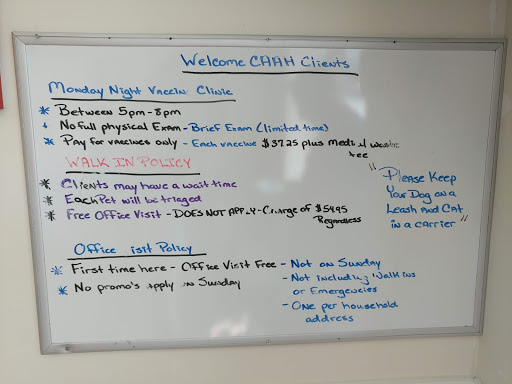 Welcome CAAH Clients
Monday Night Vaccin Clinic
* Between 5pm-8pm
* No full physical Exam - Brief Exam (limited time)
* Pay for vaccines only - Each vaccine $37.25 plus Medi l waste
fee
WALK IN POLICY
* Clients may have a wait time
* Each Pet will be triaged
* Free Office Visit - DOES NOT APPLY - Charge of $54.95
Regardless
"Please Keep
Your Dog on a
Leash and Cat
in a carrier"
Office isit Policy
* First time here - Office Visit Free - Not on Sunday
- Not including Walk ins
or Emergencies
* No promo's apply on Sunday
- One per household
address